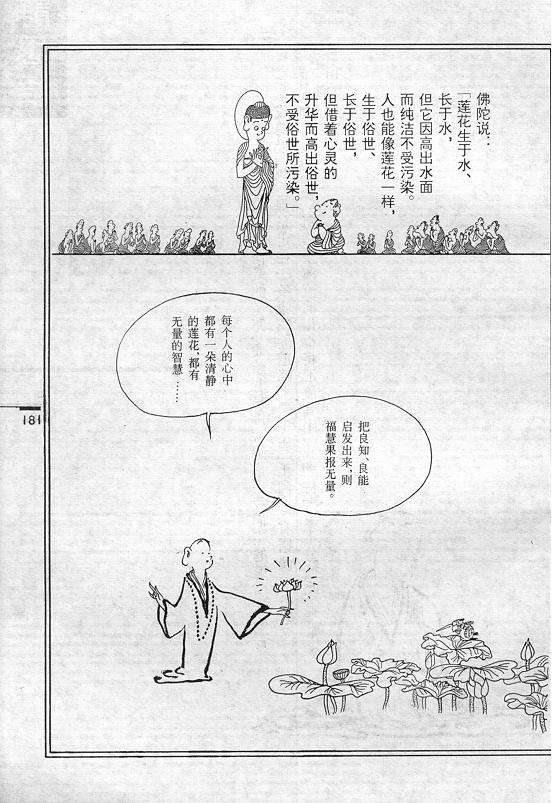 佛陀说：
「莲花生于水、
长于水，
但它因高出水面
而纯洁不受污染。
人也能像莲花一样，
生于俗世、
长于俗世，
但借着心灵的
升华而高出俗世，
不受俗世所污染。」
每个人的心中
都有一朵清静
的莲花，都有
无量的智慧……
把良知、良能
启发出来，则
福慧果报无量。
181